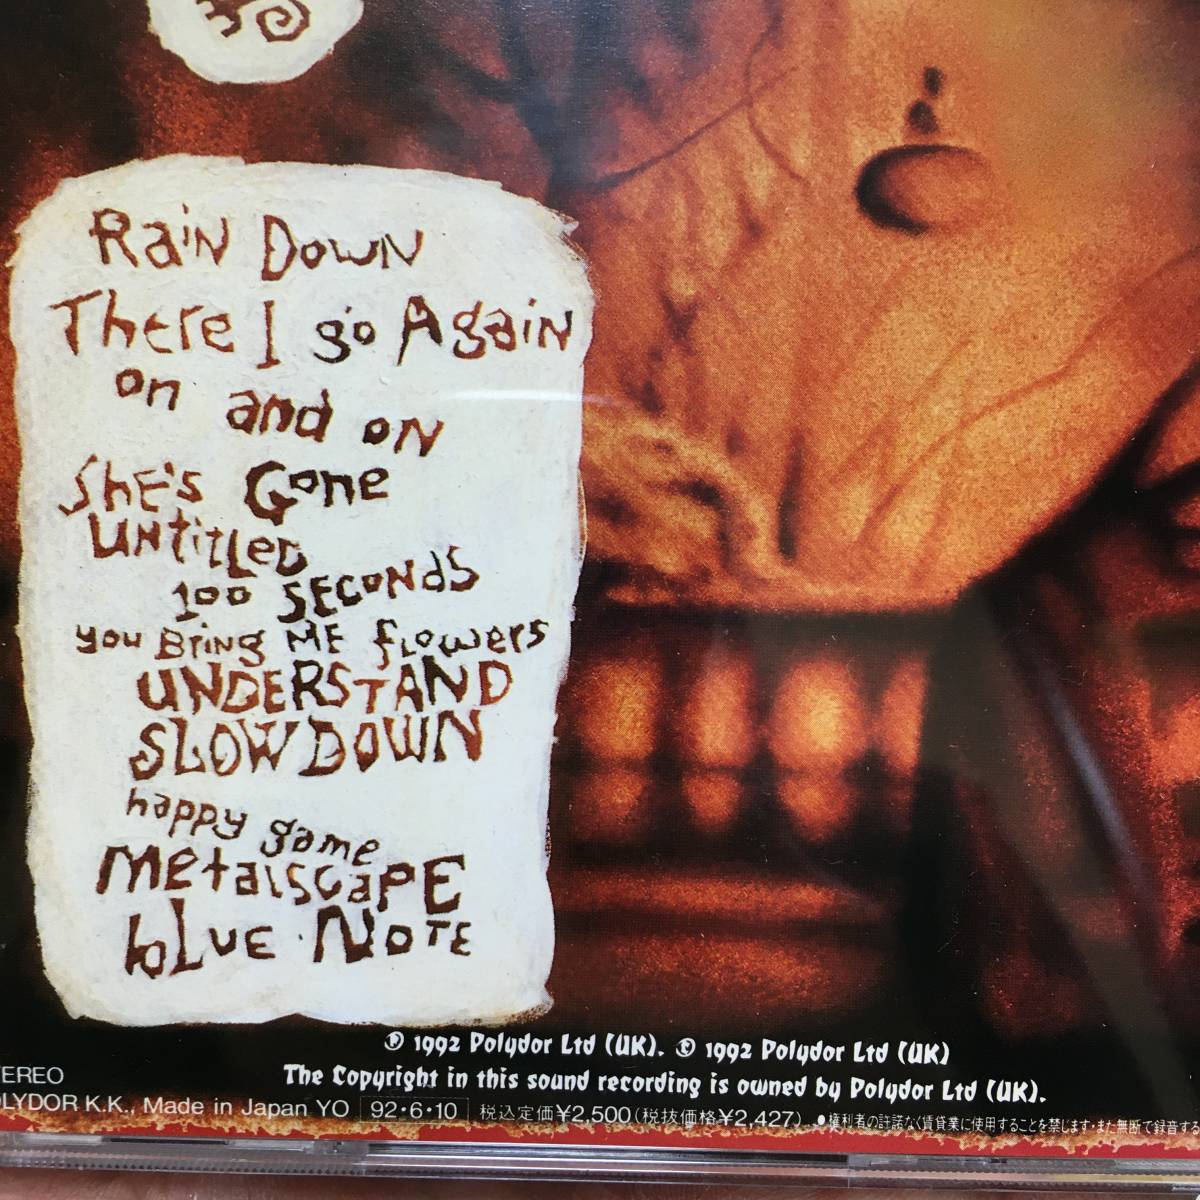 Rain Down
There I go Again
on and on
She's Gone
Untitled
100 SECONDS
you Bring ME flowers
UNDERSTAND
SLOW DOWN
happy game
metalscapE
blue Note
Ⓟ 1992 Polydor Ltd (UK). © 1992 Polydor Ltd (UK)
The Copyright in this sound recording is owned by Polydor Ltd (UK).
TEREO
OLYDOR K.K., Made in Japan YO 92・6・10 税込定価¥2,500(税抜価格¥2,427) ●権利者の許諾なく賃貸業に使用することを禁じます・また無断で録音する